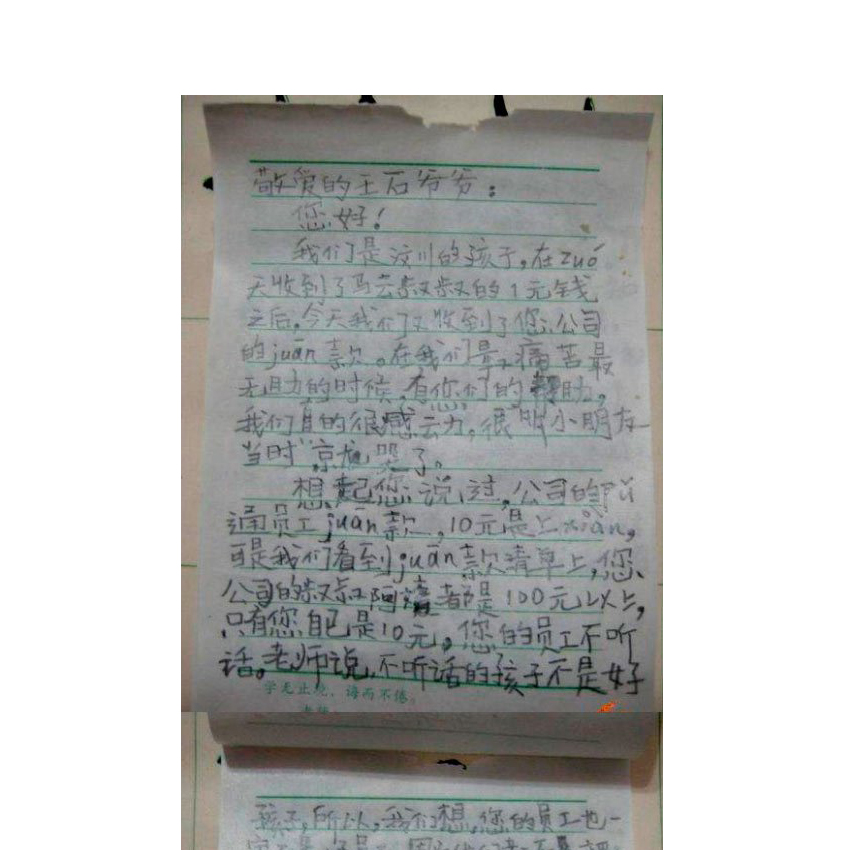 敬爱的王石爷爷：
您好！
我们是汶川的孩子，在zuó
天收到了马云叔叔的1元钱
之后，今天我们又收到了您公司
的juān款。在我们最痛苦最
无助的时候，有您们的帮助，
我们真的很感云力，很 小朋友
当时 哭了。
想起您说过，公司的Pǔ
通员工juān款，10元是上xiàn，
可是我们看到juān款清单上，您
公司的叔叔阿姨都是100元以上，
只有您自己是10元。您的员工不听
话。老师说，不听话的孩子不是好
学无止境，诲而不倦
孩子，所以，我们想，您的员工也一